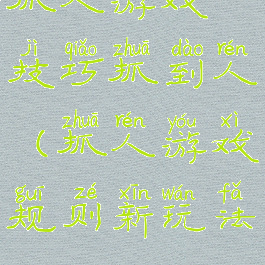 抓人游戏
jì qiǎo zhuā dào rén
技巧抓到人
zhuā rén yóu xì
(抓人游戏
guī zé xīn wán fǎ
规则新玩法